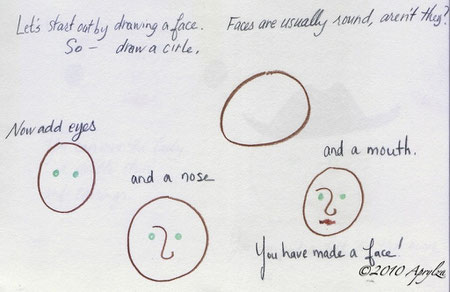 Let's start out by drawing a face.
So — draw a cirle.
Faces are usually round, aren't they?
Now add eyes
and a nose
and a mouth.
You have made a face!
©2010 Aprylze